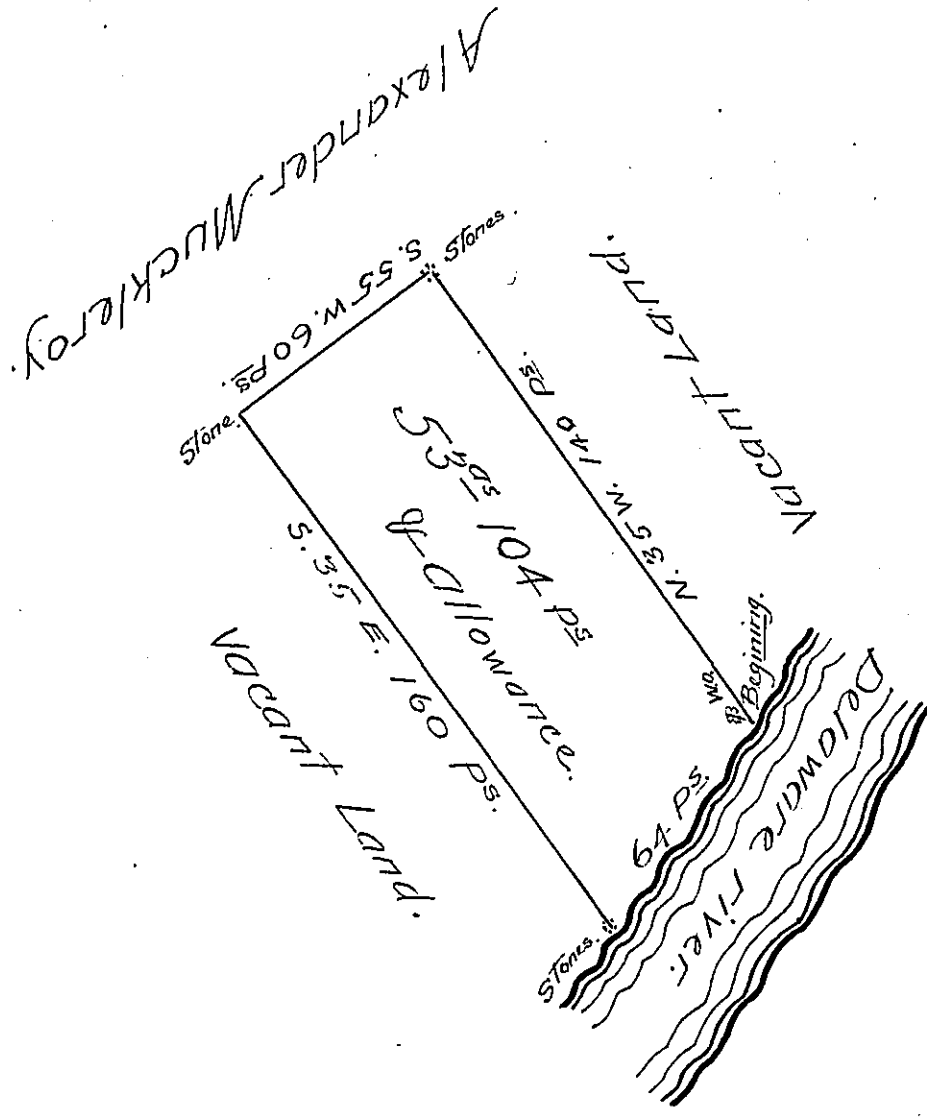 Alexander Muckleroy.
Stones.
S. 55 W. 60 ps.
Stone.
Vacant Land.
N. 35 W. 140 ps.
53 as 104 ps
& Allowance.
S. 35 E. 160 ps.
Vacant Land.
Begining.
64 ps.
Delaware river.
Stones.